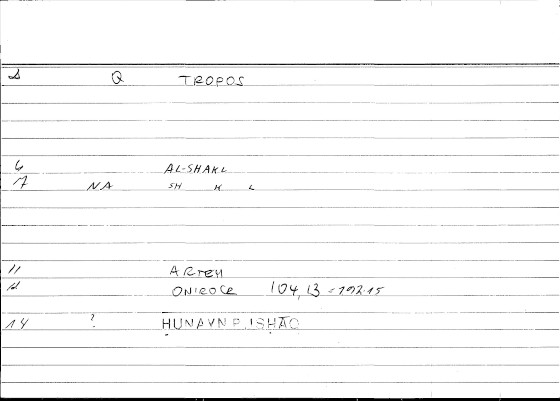 Q TROPOS
6 AL-SHAKL
NA SH K L
11 ARTEM
ONIROCR 104,13 = 192.15
14 ? ḤUNAYN B. ISḤĀQ